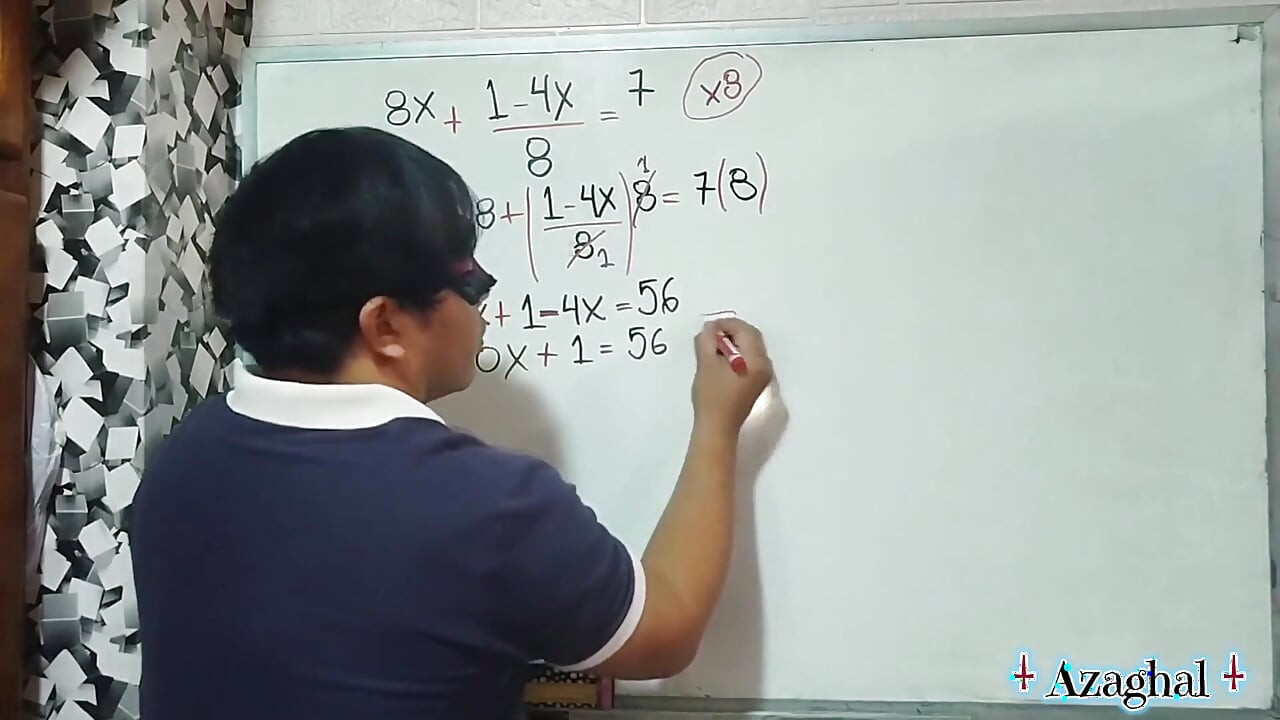 8x + 1-4x/8 = 7 (x8)
8+(1-4x/8 1)8 1 = 7(8)
x+1-4x=56
0x+1=56
Azaghal